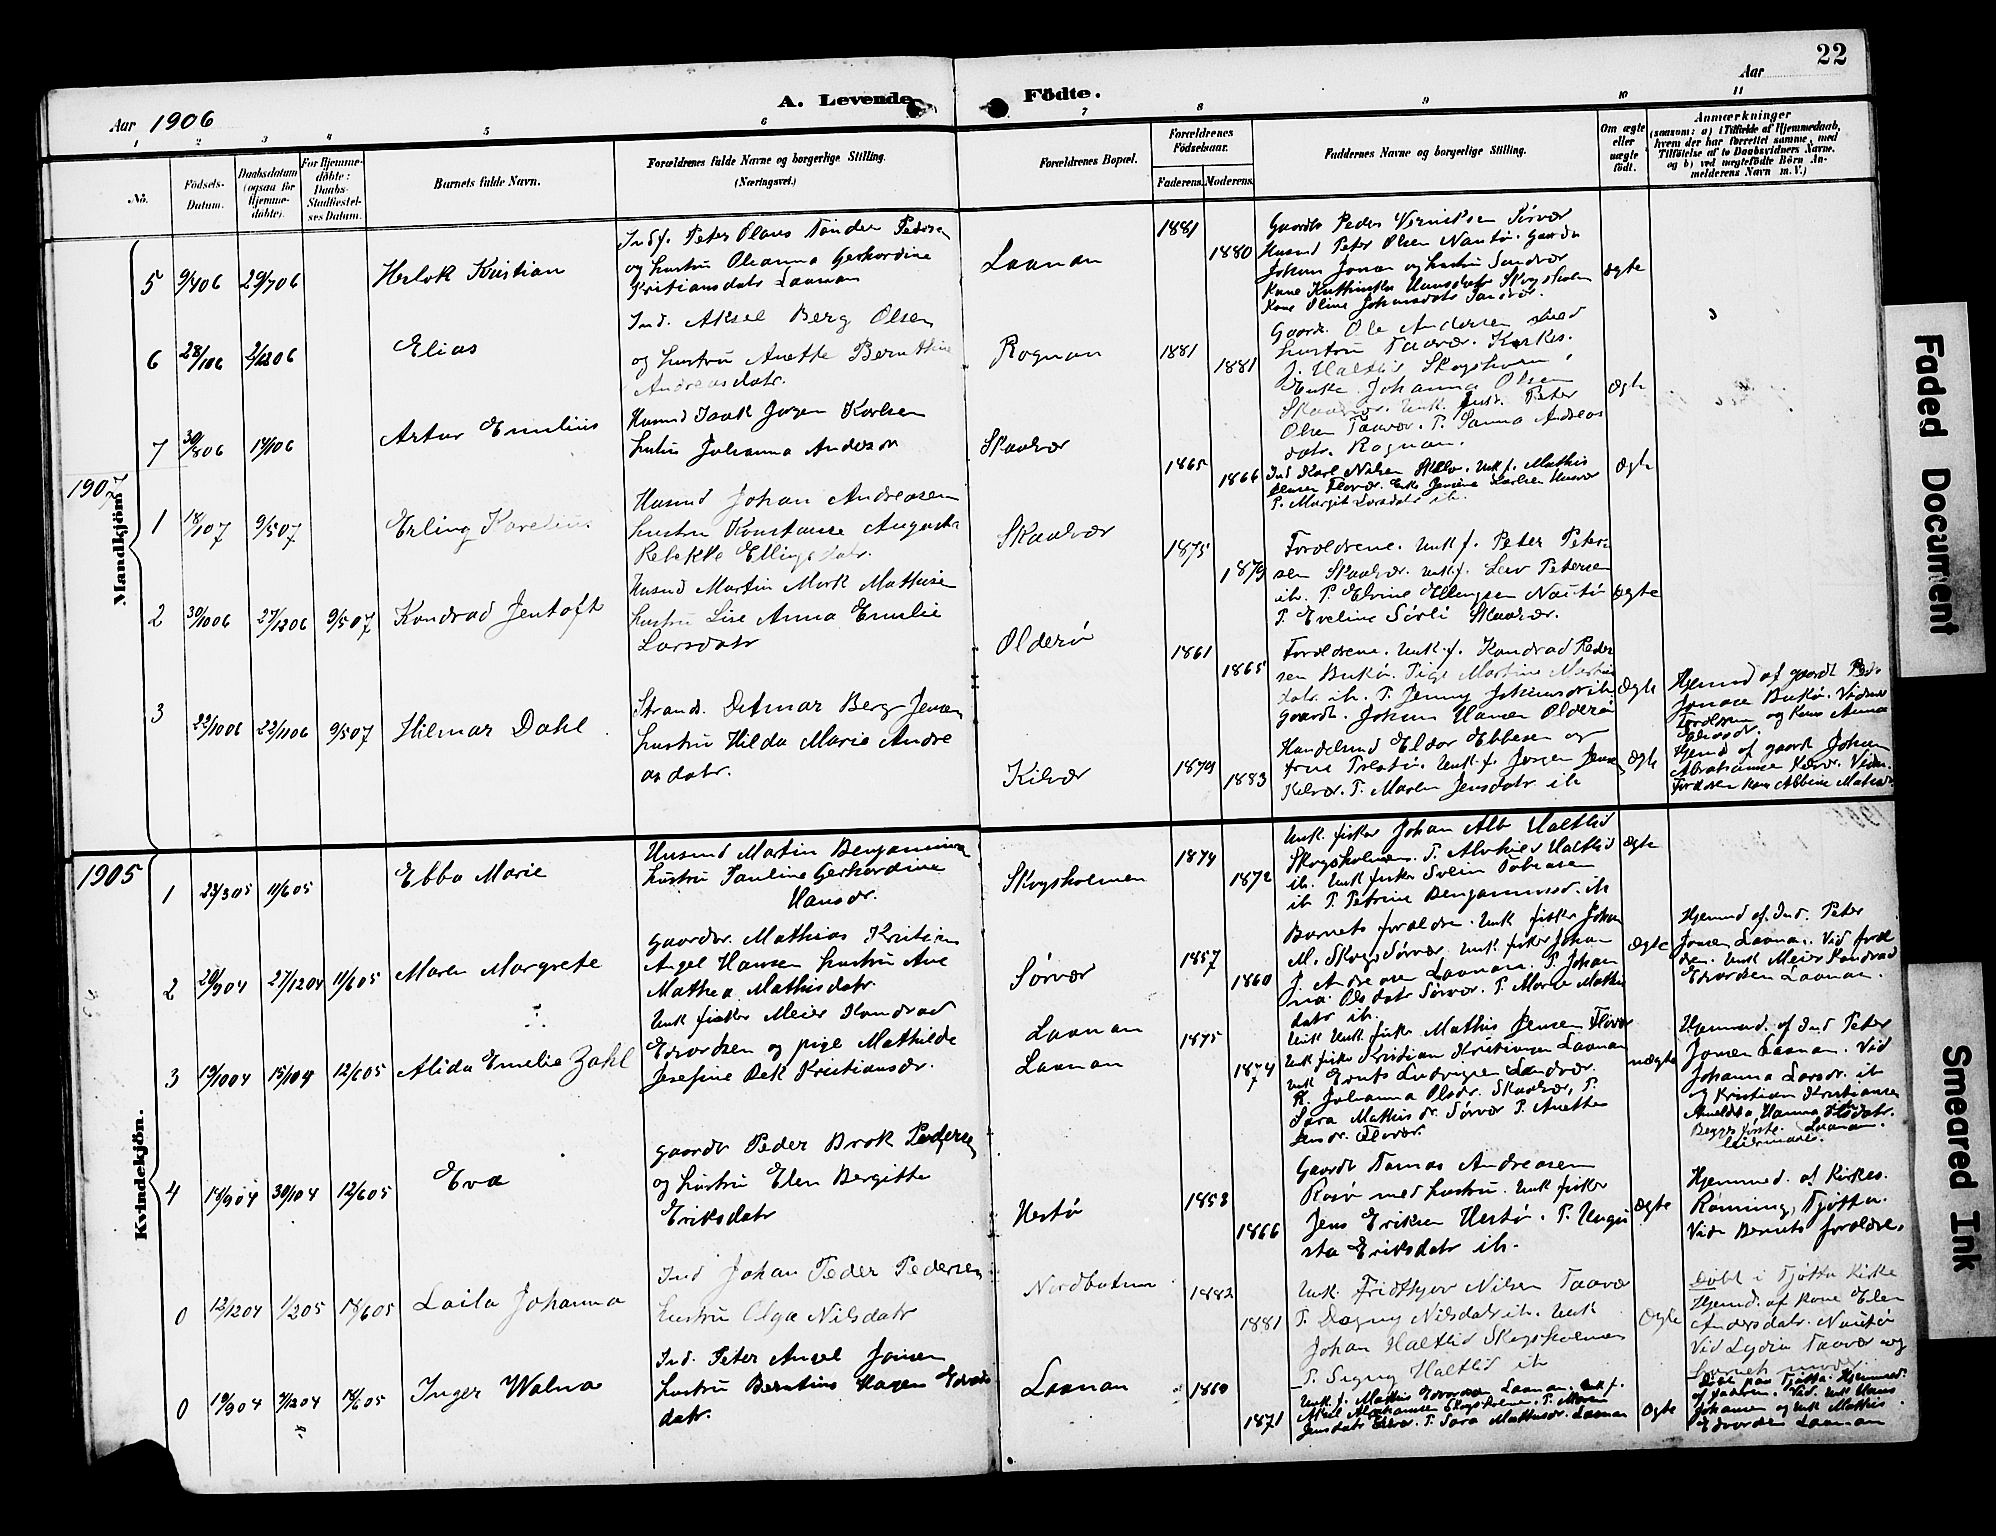 22
Aar 1906
A. Levende
Födte.
Aar
1 2 3 4 5 6 7 8 9 10 11
Nö.
Födsels-
Datum.
Daabsdatum
(ogsaa for
Hjemme-
döbte).
For Hjemme-
döbte:
Daabs-
Stadfæstel-
ses Datum.
Barnets fulde Navn.
Forældrenes fulde Navne og borgerlige Stilling.
(Næringsvei.)
Forældrenes Bopæl.
Forældrenes
Födselsaar.
Faderens. Moderens.
Faddernes Navne og borgerlige Stilling.
Om ægte
eller
uægte
födt.
Anmærkninger
(saasom: a) i Tilfælde af Hjemmedaab,
hvem der har forrettet samme, med
Tilföielse af to Daabsvidners Navne.
og b) ved uægtefödte Börn An-
melderens Navn m. V.)
Mandkjöm
5 9/406 29/706
Herlok Kristian
Indf. Peter Olaus Tønder Peders
og hustru Oleanna Gerhardine
Kristiansdatr Laanan
Laanan
1881
1880
Gaardb Peder Verniksen Sørvær
Husmd Peter Olsen Nautø. Gaardb
Johan Jonsen og hustru Sandvær
Kone Kathinka Hansdatr Skogsholm
Kone Oline Johansdatr Sandvær.
ægte
6 28/106 2/1206
Elias
Ind. Aksel Berg Olsen
og hustru Anette Bernthine
Andreasdatr.
Rognan
1881
1881
Gaardb. Ole Andersen med
hustru Taavær. Kirkes.
J. Haltlid Skogsholm,
Enke Johanna Olsen
Skaalvær. Unk. Indr. Peter
Olsen Taavær. P. Sanna Andreas
datr. Rognan.
Ægte
7 30/806 14/106
Artur Emilius
Husmd Isak Jørgen Karlsen
hustru Johanna Anderson
Skaalvær
1865
1866
Ind Karl Nilsen. Unk f. Mathis
Jensen Flovær. Enke Larsen Husvær
P. Margit Larsdatr ib.
Ægte
1907
1 18/307 9/507
Erling Karelius
Husmd Johan Andreasen
hustru Konstanse Augusta
Rebekka Ellingsdatr.
Skaalvær
1875
1879
Forældrene. Unk f. Peter Peter
sen Skaalvær. unk f. Petersen
ib. P Elvine Ellingsen Nautø
P. Eveline Sørli Skaalvær.
Ægte
2 30/1006 27/1206 9/507
Kondrad Jentoft
Husmd Martin Mork Mathisen
hustru Lise Anna Emilie
Larsdatr
Olderø
1861
1865
Forældrene. Unk f. Kondrad Peder
sen Bukø. Pige Martine Martins
datr ib. P. Jenny Johansdr ib.
Gaardb. Johan Hansen Olderø
Ægte
Hjemmd af gaardb Peder
Jonsen Bukø. Vidner
Forældrene og Kone Anna
3 22/1006 22/1106 9/507
Hilmar Dahl.
Strands. Ditmar Berg Jensen
hustru Hilda Marie Andre
asdatr.
Kilvær
1879
1883
Handelsmd Eldor Ebbesen og
frue Prestø. Unk. f. Jørgen Jensen
Kilvær. P. Maren Jensdatr ib
Ægte
Hjemd af gaardb Johan
Abrahamsen Kilvær. Vidn.
Forældrene Kone Abbine Mathisd
Kvindekjön.
1905
1 23/305 11/605
Ebba Marie
Husmd Martin Benjaminsen
hustru Pauline Gerhardine
Hansdr.
Skogsholmen
1874
1872
Unk. fisker Johan Alb Haltlid
Skogsholmen. P. Haltlid
ib. Unk fisker Svein Tobiasen
ib P. Petrine Benjaminsd. ib
Ægte
2 29/904 27/1204 11/605
Maren Margrete
Gaardbr. Mathias Kristian
Angel Hansen hustru Ane
Mathea Mathisdatr.
Sørvær
1857
1860
Barnets forældre. Unk fisker Johan
M. Skogs Sørvær. Unk. fisker Johan
J. Andreasen Laanan. P. Johan
na Olsdatr Sørvær. P. Maren Mathis
datr ib.
Ægte
Hjemmd af. Ind. Peter
Jonsen Laanan. Vid foræl
dre. Unk Meier Kondrad
Edvardsen Laanan.
3 19/1004 15/104 12/605
Alida Emelie Zahl
Unk fisker Meier Kondrad
Edvardsen og pige Mathilde
Josefine Rek Kristiansdr.
Laanan
Laanan
1875
1874
Unk fisker Mathis Jensen Flovær
Unk fisker Kristian Kristiansen Laanan
unk Ludvigsen Sandvær.
K. Johanna Olsdr. Skaalvær, P.
Sara Mathisdr. Sørvær P. Anette
Jensdr. Flovær.
uægte
Hjemmd. af Ind Peter
Jonsen Laanan. Vid
Johanna Larsdr. ib
og Kristian Kristiansen
Hanna Olsdatr.
Begges første Laanan.
leiermaal.
4 14/904 30/104 12/605
Eva
Gaardb Peder Brok Pedersen
og hustru Elen Bergitte
Eriksdatr
Hestø
1858
1866
Gaardb Tomas Andreasen
Rosø med hustru. Unk fisker
Jens Eriksen Hestø. P. Augu
sta Eriksdatr ib.
Ægte
Hjemmed. af Kirkes.
Rønning, Tjøtta.
Vid. Barnets forældre.
0 12/1204 1/205 18/605
Laila Johanna
Ind Johan Peder Pedersen
hustru Olga Nilsdatr
Nordbotnen
1882
1881
Unk. Fridthjov Nilsen Taavær
P. Dagny Nilsdatr ib. Unk
Johan Haltlid Skogsholmen
P. Signy Haltlid ib
Ægte
Døbt i Tjøtta Kirke
Hjemd. af kone Elen
Andersdatr. Nautø
Vid Lydia Taavær og
barnets moder.
0 19/904 7/1204 18/605
Inger Walma
Ind. Peter Angel Jonsen
hustru Berntine Hagen Edvards
datr.
Laanan
1860
1871
Unk. f. Mathis Edvardsen Laanan. Unk f.
Aksel Abrahamsen Skogsholmen. P. Maren
Jensdatr P. Sara Mathisdr. Laanan
Ægte
Døbt paa Tjøtta. Hjemmed.
af faderen. Vid. unk Hans
Johansen og unk Mathis
Edvardsen Laanan
Faded Document
Smeared Ink